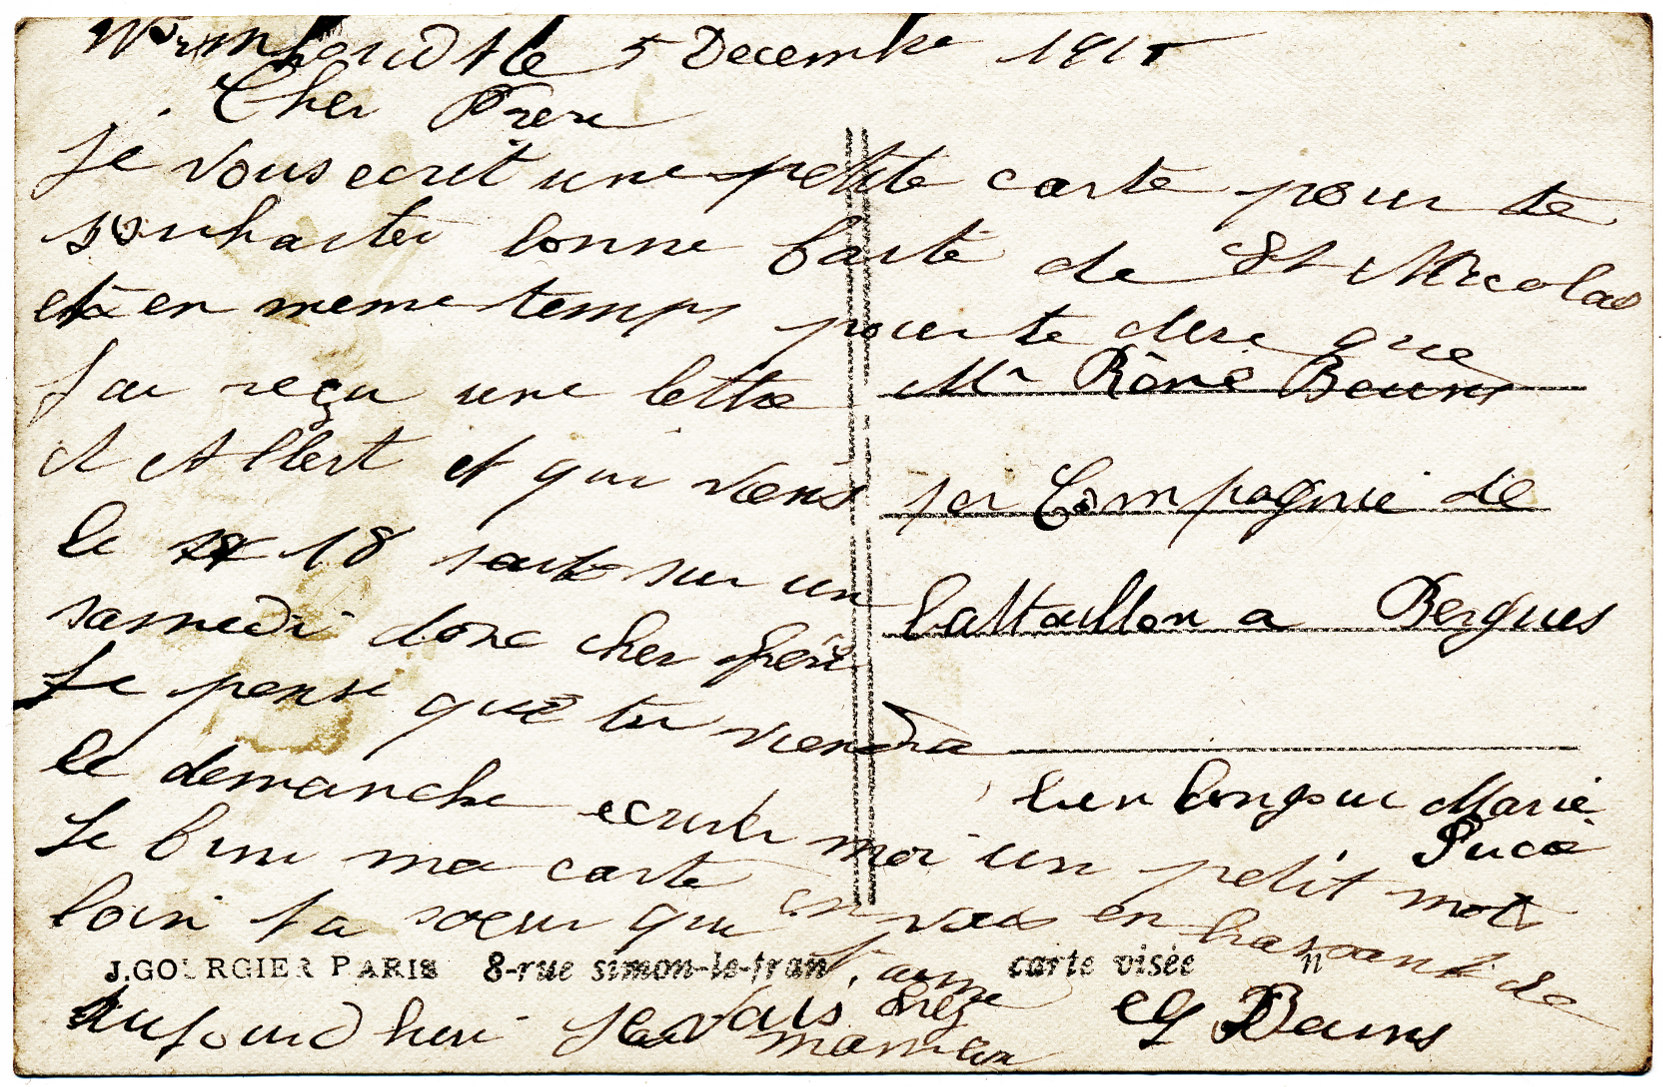 Wormhoudt le 5 Decembre 1915
Cher Frere
Je vous ecrit une petite carte pour te
souhaiter bonne faite de St Nicolas
et en meme temps pour te dire que
J'ai reçu une lettre
d Albert et qui viens
le 18 sur un
samedi donc cher frere
Je pense que tu viendra
le demanche ecrit moi un petit mot
Je fini ma carte en vous en brassant de
loin ta sœur qui t'aime
Aujourd hui Je vais chez maman
G Baums
Mr Réné Baums
1er Compagnie de
battaillon a Bergues
bien bonjour Marie
Puce
J.GOURGIER PARIS 8-rue simon-le-fran carte visée n